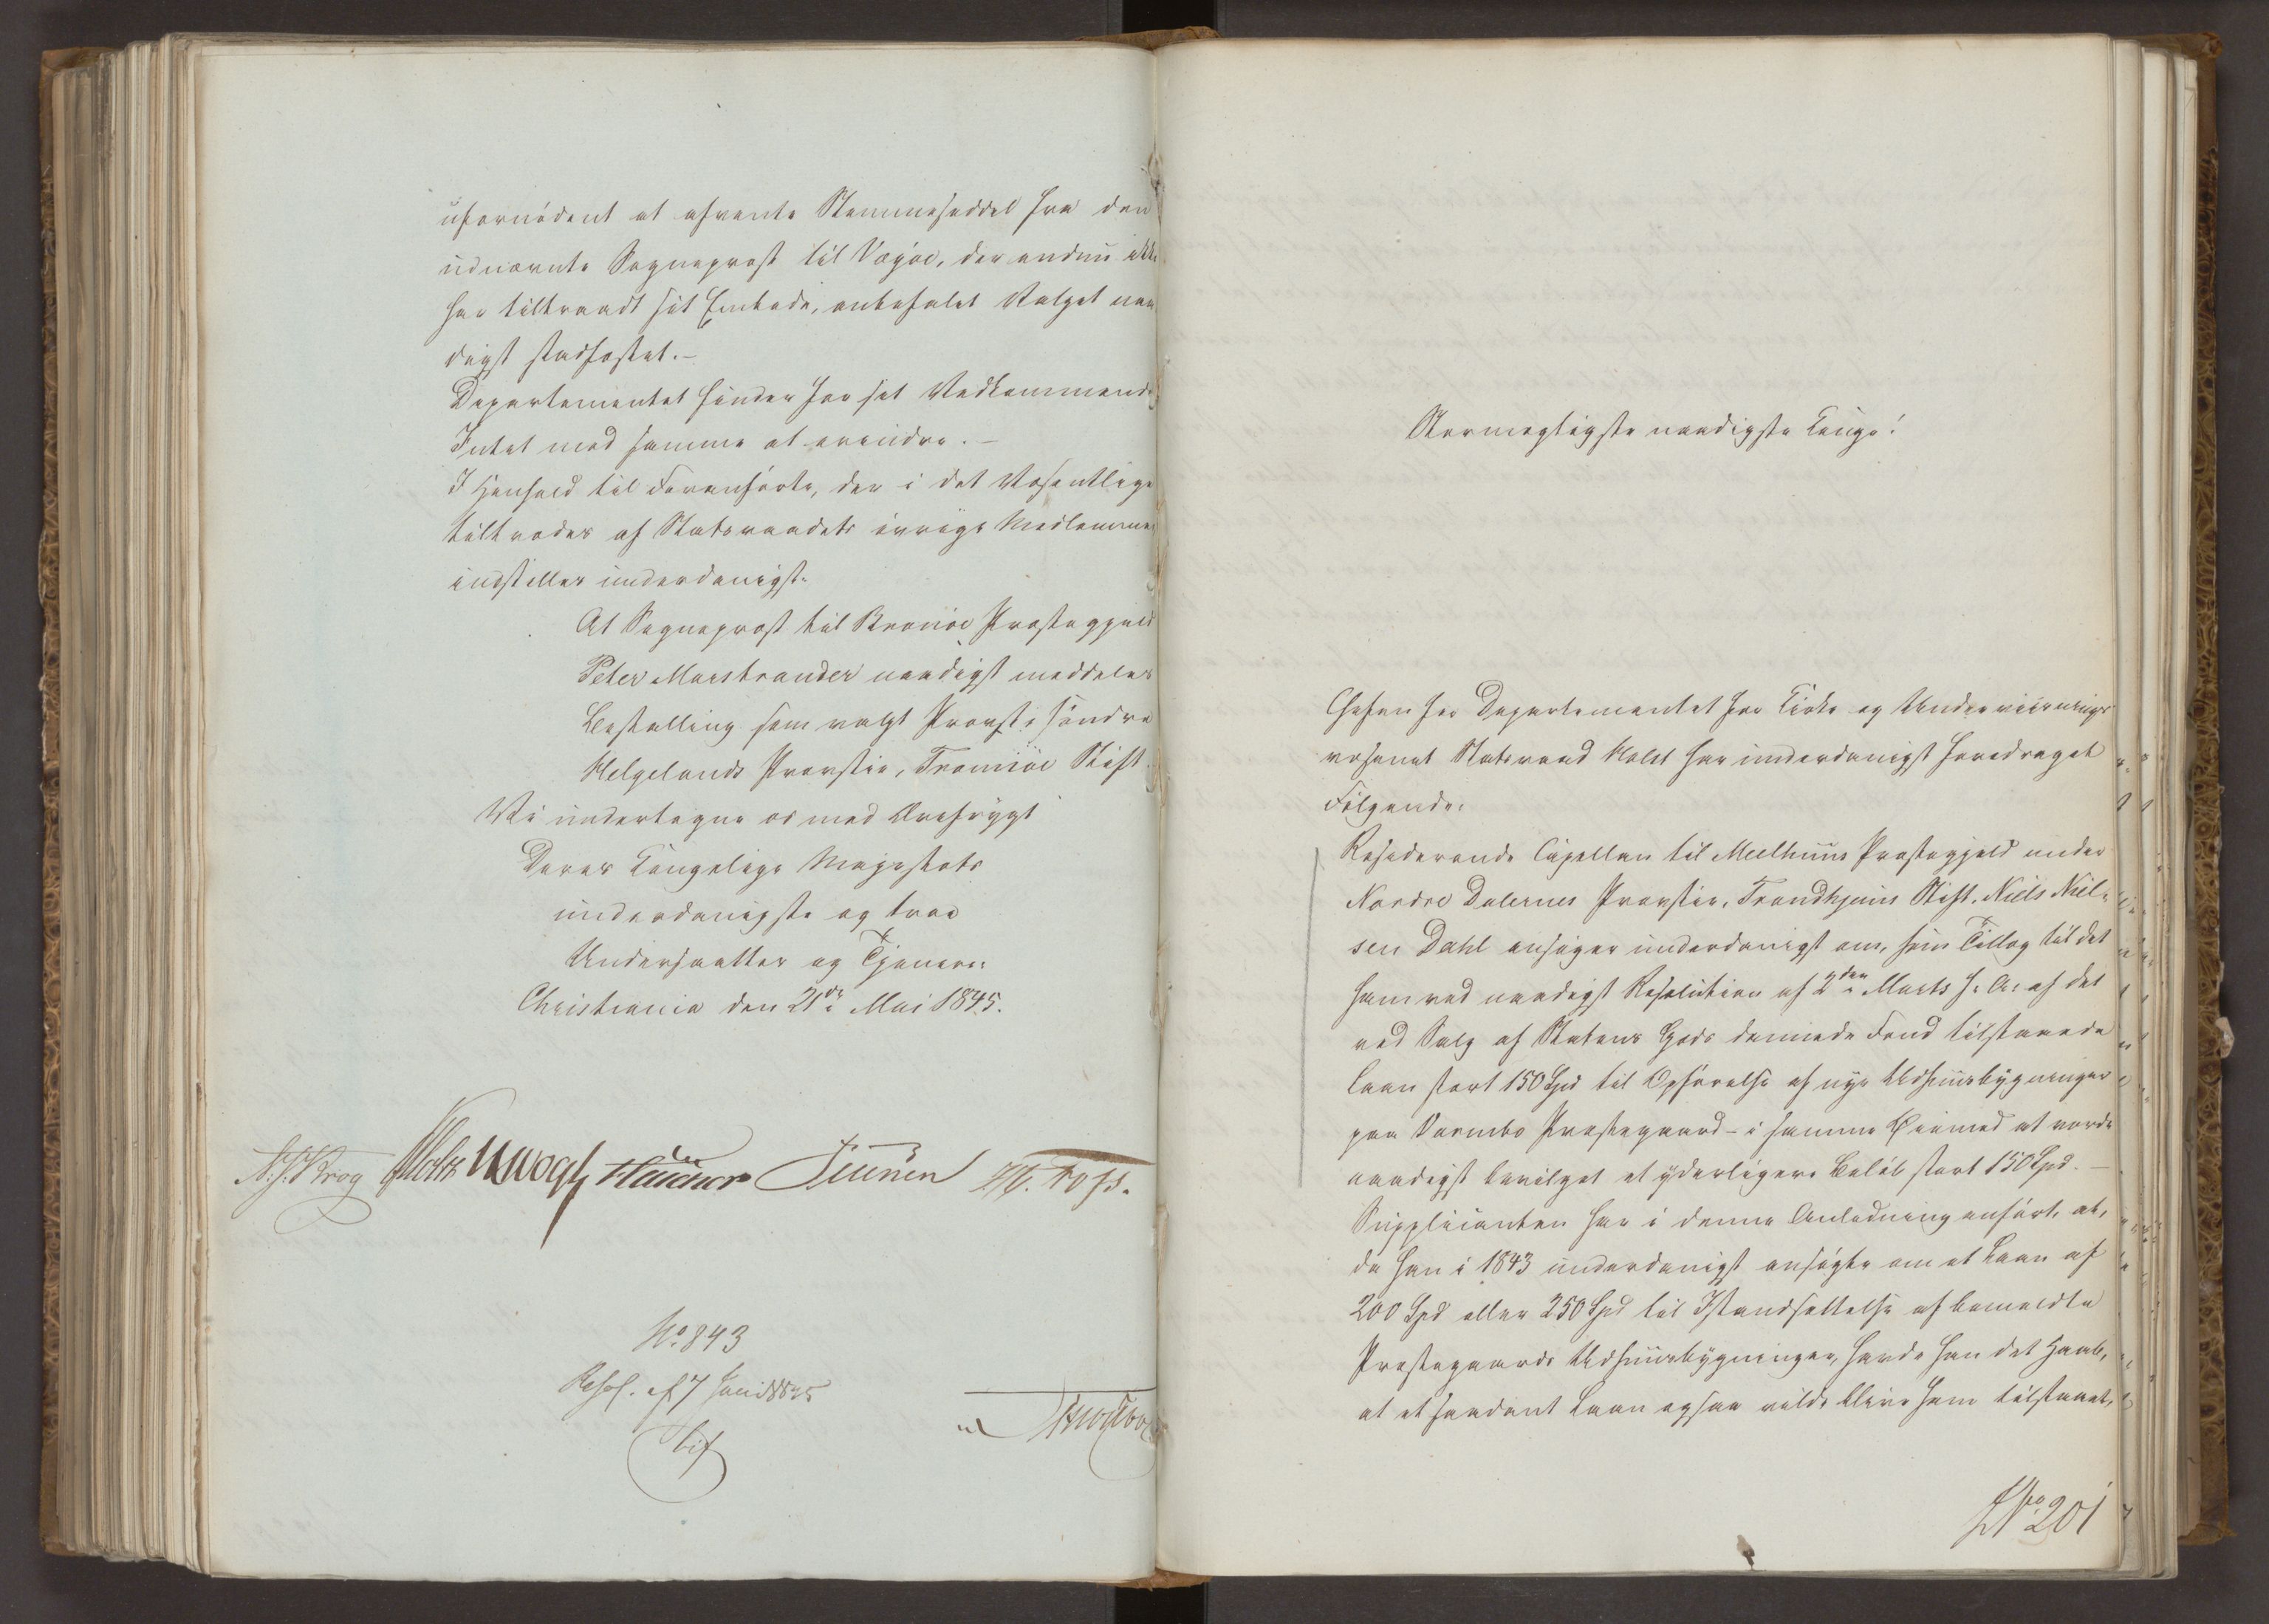 ufornødent at afvente Stemmeseddel fra den
udnævnte Sogneprest til Vægøe, der endnu ikke
har tiltraadt sit Embede, anbefalet Valget naa
digst stadfæstet.-
Departementet finder for sit Vedkommende
Intet mod samme at erindre. -
I Henhold til Foranførte, der i det Væsentlige
tiltrædes af Statsraadets øvrige Medlemmer
indstilles underdanigst:
At Sogneprest til Brønøe Præstegjeld
Peter Marstrander naadigst meddeles
Bestalling som valgt Provst i søndre
Helgelands Provstie, Tromsøe Stift.
Vi undertegne os med Ærefrygt
Deres Kongelige Majestæts
underdanigste og troe
Undersaatter og Tjenere:
Christiania den 21de Mai 1845.
N. J. Krog Holst JHVogt
No 843
Resol. af 7 Juni 1845
Stormægtigste naadigste Konge!
Chefen for Departementet for Kirke og Underviisnings
væsenet Statsraad Holst har underdanigst foredraget
Følgende:
Resederende Capellan til Meelhuus Præstegjeld under
Nordre Dalernes Provstie, Trondhjems Stift, Niels Niel-
sen Dahl ansøger underdanigst om, som Tillæg til det
ham ved naadigst Resolution af 2den Marts f. A. af det
ved Salg af Statens Gods dannede Fond tilstaaede
Laan stort 150 Spd til Opførelse af nye Udhuusbygninger
paa Varmbo Præstegaard - i samme Øiemed at vorde
naadigst bevilget et yderligere Beløb stort 150 Spd. -
Supplicanten har i denne Anledning anført, at,
da han i 1843 underdanigst ansøgte om et Laan af
200 Spd eller 250 Spd til Istandsættelse af bemeldte
Præstegaards Udhuusbygninger, havde han det Haab,
at et saadant Laan ogsaa vilde blive ham tilstaaet,
No 201